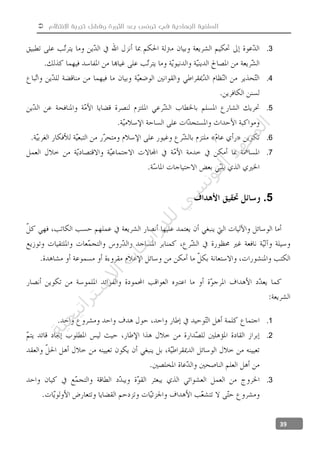 السلفية الجهادية في تونس بعد الثورة وفشل تجربة الانتظام
3. الدّعوة إلى تحكيم الشريعة وبيان منزلة الحكم بما أنزل الله في الدّين وما يترتّب على تطبيق
الشّريعة من المصالح الدينيّة والدنيويّة وما يترتّب على غيابها من المفاسد فيهما كذلك.
4. التّحذير من النّظام الدّيمقراطي والقوانين الوضعيّة وبيان ما فيهما من مناقضة للدّين واتّباع
لسنن الكافرين.
5. تحريك الشارع المسلم بالخطاب الشّرعي الملتزم لنصرة قضايا الأمّة والمنافحة عن الدّين
ومواكبة الأحداث والمستجدّات على الساحة الإسلاميّة.
6. تكوين «رأي عامّ» ملتزم بالشّرع وغيور على الإسلام ومتحرّر من التبعيّة للأفكار الغربيّة.
7. المساهمة بما أمكن في خدمة الأمّة في المجالات الاجتماعيّة والاقتصاديّة من خلال العمل
الخيري الذي يلبّي بعض الاحتياجات الماسّة.
5. وسائل تحقيق الأهداف
أما الوسائل والآليات التي ينبغي أن يعتمد عليها أنصار الشريعة في عملهم حسب الكاتب، فهي كلّ
وسيلة وآليّة نافعة غير محظورة في الشّرع، كمنابر المساجد والدّروس والتجمّعات والملتقيات وتوزيع
الكتب والمنشورات، والاستعانة بكلّ ما أمكن من وسائل الإعلام مقروءة أو مسموعة أو مشاهدة.
كما يعدّد الأهداف المرجوّة أو ما اعتبره العواقب المحمودة والفوائد الملموسة من تكوين أنصار
الشريعة:
1. اجتماع كلمة أهل التّوحيد في إطار واحد، حول هدف واحد ومشروع واحد.
2. إبراز القادة المؤهلين للصّدارة من خلال هذا الإطار، حيث ليس المطلوب إيجاد قائد يتمّ
تعيينه من خلال الوسائل الديمقراطيّة، بل ينبغي أن يكون تعيينه من خلال أهل الحلّ والعقد
من أهل العلم الناصحين والدّعاة المخلصين.
3. الخروج من العمل العشوائي الذي يبعثر القوّة ويبدّد الطاقة والتجمّع في كيان واحد
ومشروع حتّى لا تتشعّب الأهداف والجزئيّات وتزدحم القضايا وتتعارض الأولويّات.
39